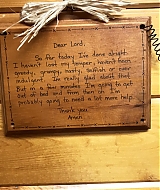 Dear Lord,
So far today I've done alright.
I haven't lost my temper, haven't been
greedy, grumpy, nasty, selfish or over
indulgent. I'm really glad about that
But in a few minutes I'm going to get
out of bed and from then on I'm
probably going to need a lot more help.
Thank you,
Amen.